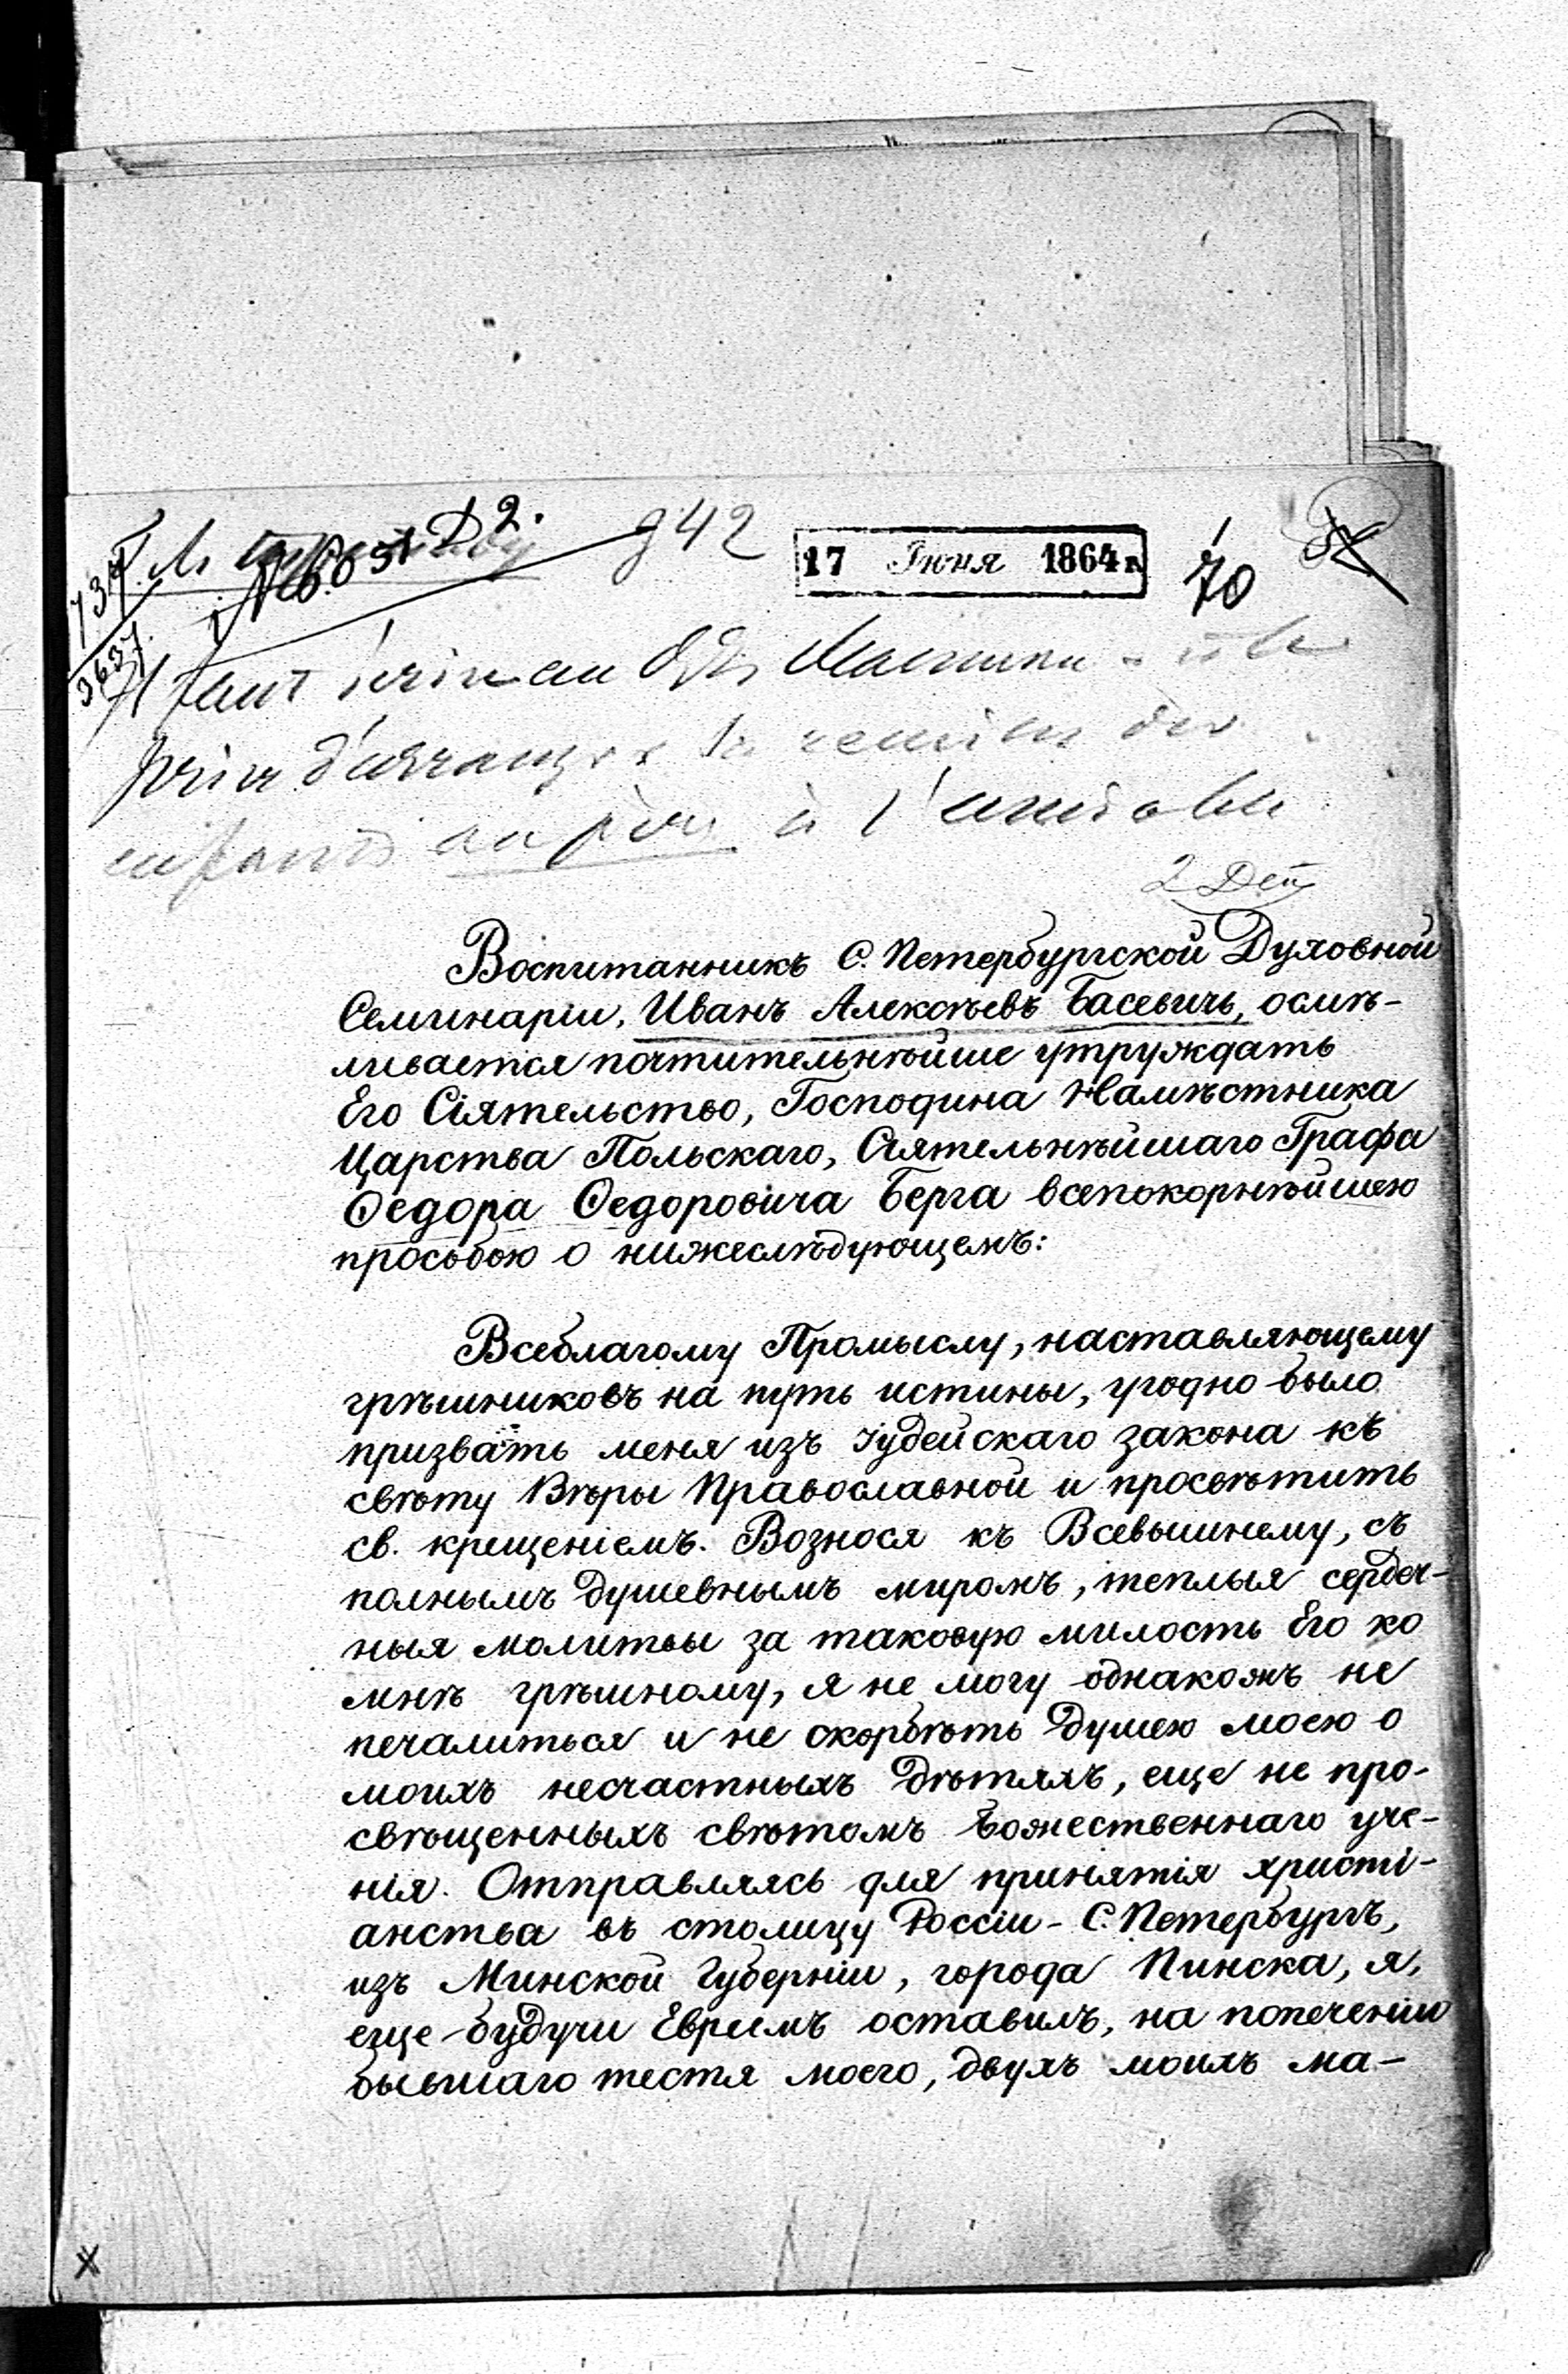 942
17 Іюня 1864 г.
70
737
3637
Il faut écrire au
prier d'arranger la remise des
enfants au père à l'amiable
2 Деп
Воспитанникъ С. Петербургской Духовной
Семинаріи, Иванъ Алексѣевъ Басевичъ, осмѣ-
ливается почтительнѣйше утруждать
Его Сіятельство, Господина Намѣстника
Царства Польскаго, Сіятельнѣйшаго Графа
Ѳедора Ѳедоровича Берга всепокорнѣйшею
просьбою о нижеслѣдующемъ:
Всеблагому Промыслу, наставляющему
грѣшниковъ на путь истины, угодно было
призвать меня изъ Іудейскаго закона къ
свѣту Вѣры Православной и просвѣтить
св. крещеніемъ. Вознося къ Всевышнему, съ
полнымъ душевнымъ миромъ, теплыя сердеч-
ныя молитвы за таковую милость Его ко
мнѣ грѣшному, я не могу однакожъ не
печалиться и не скорбѣть душею моею о
моихъ несчастныхъ дѣтяхъ, еще не про-
свѣщенныхъ свѣтомъ Божественнаго уче-
нія. Отправляясь для принятія христі-
анства въ столицу Россіи - С. Петербургъ,
изъ Минской Губерніи, города Пинска, я,
еще будучи Евреемъ оставилъ, на попеченіи
бывшаго тестя моего, двухъ моихъ ма-